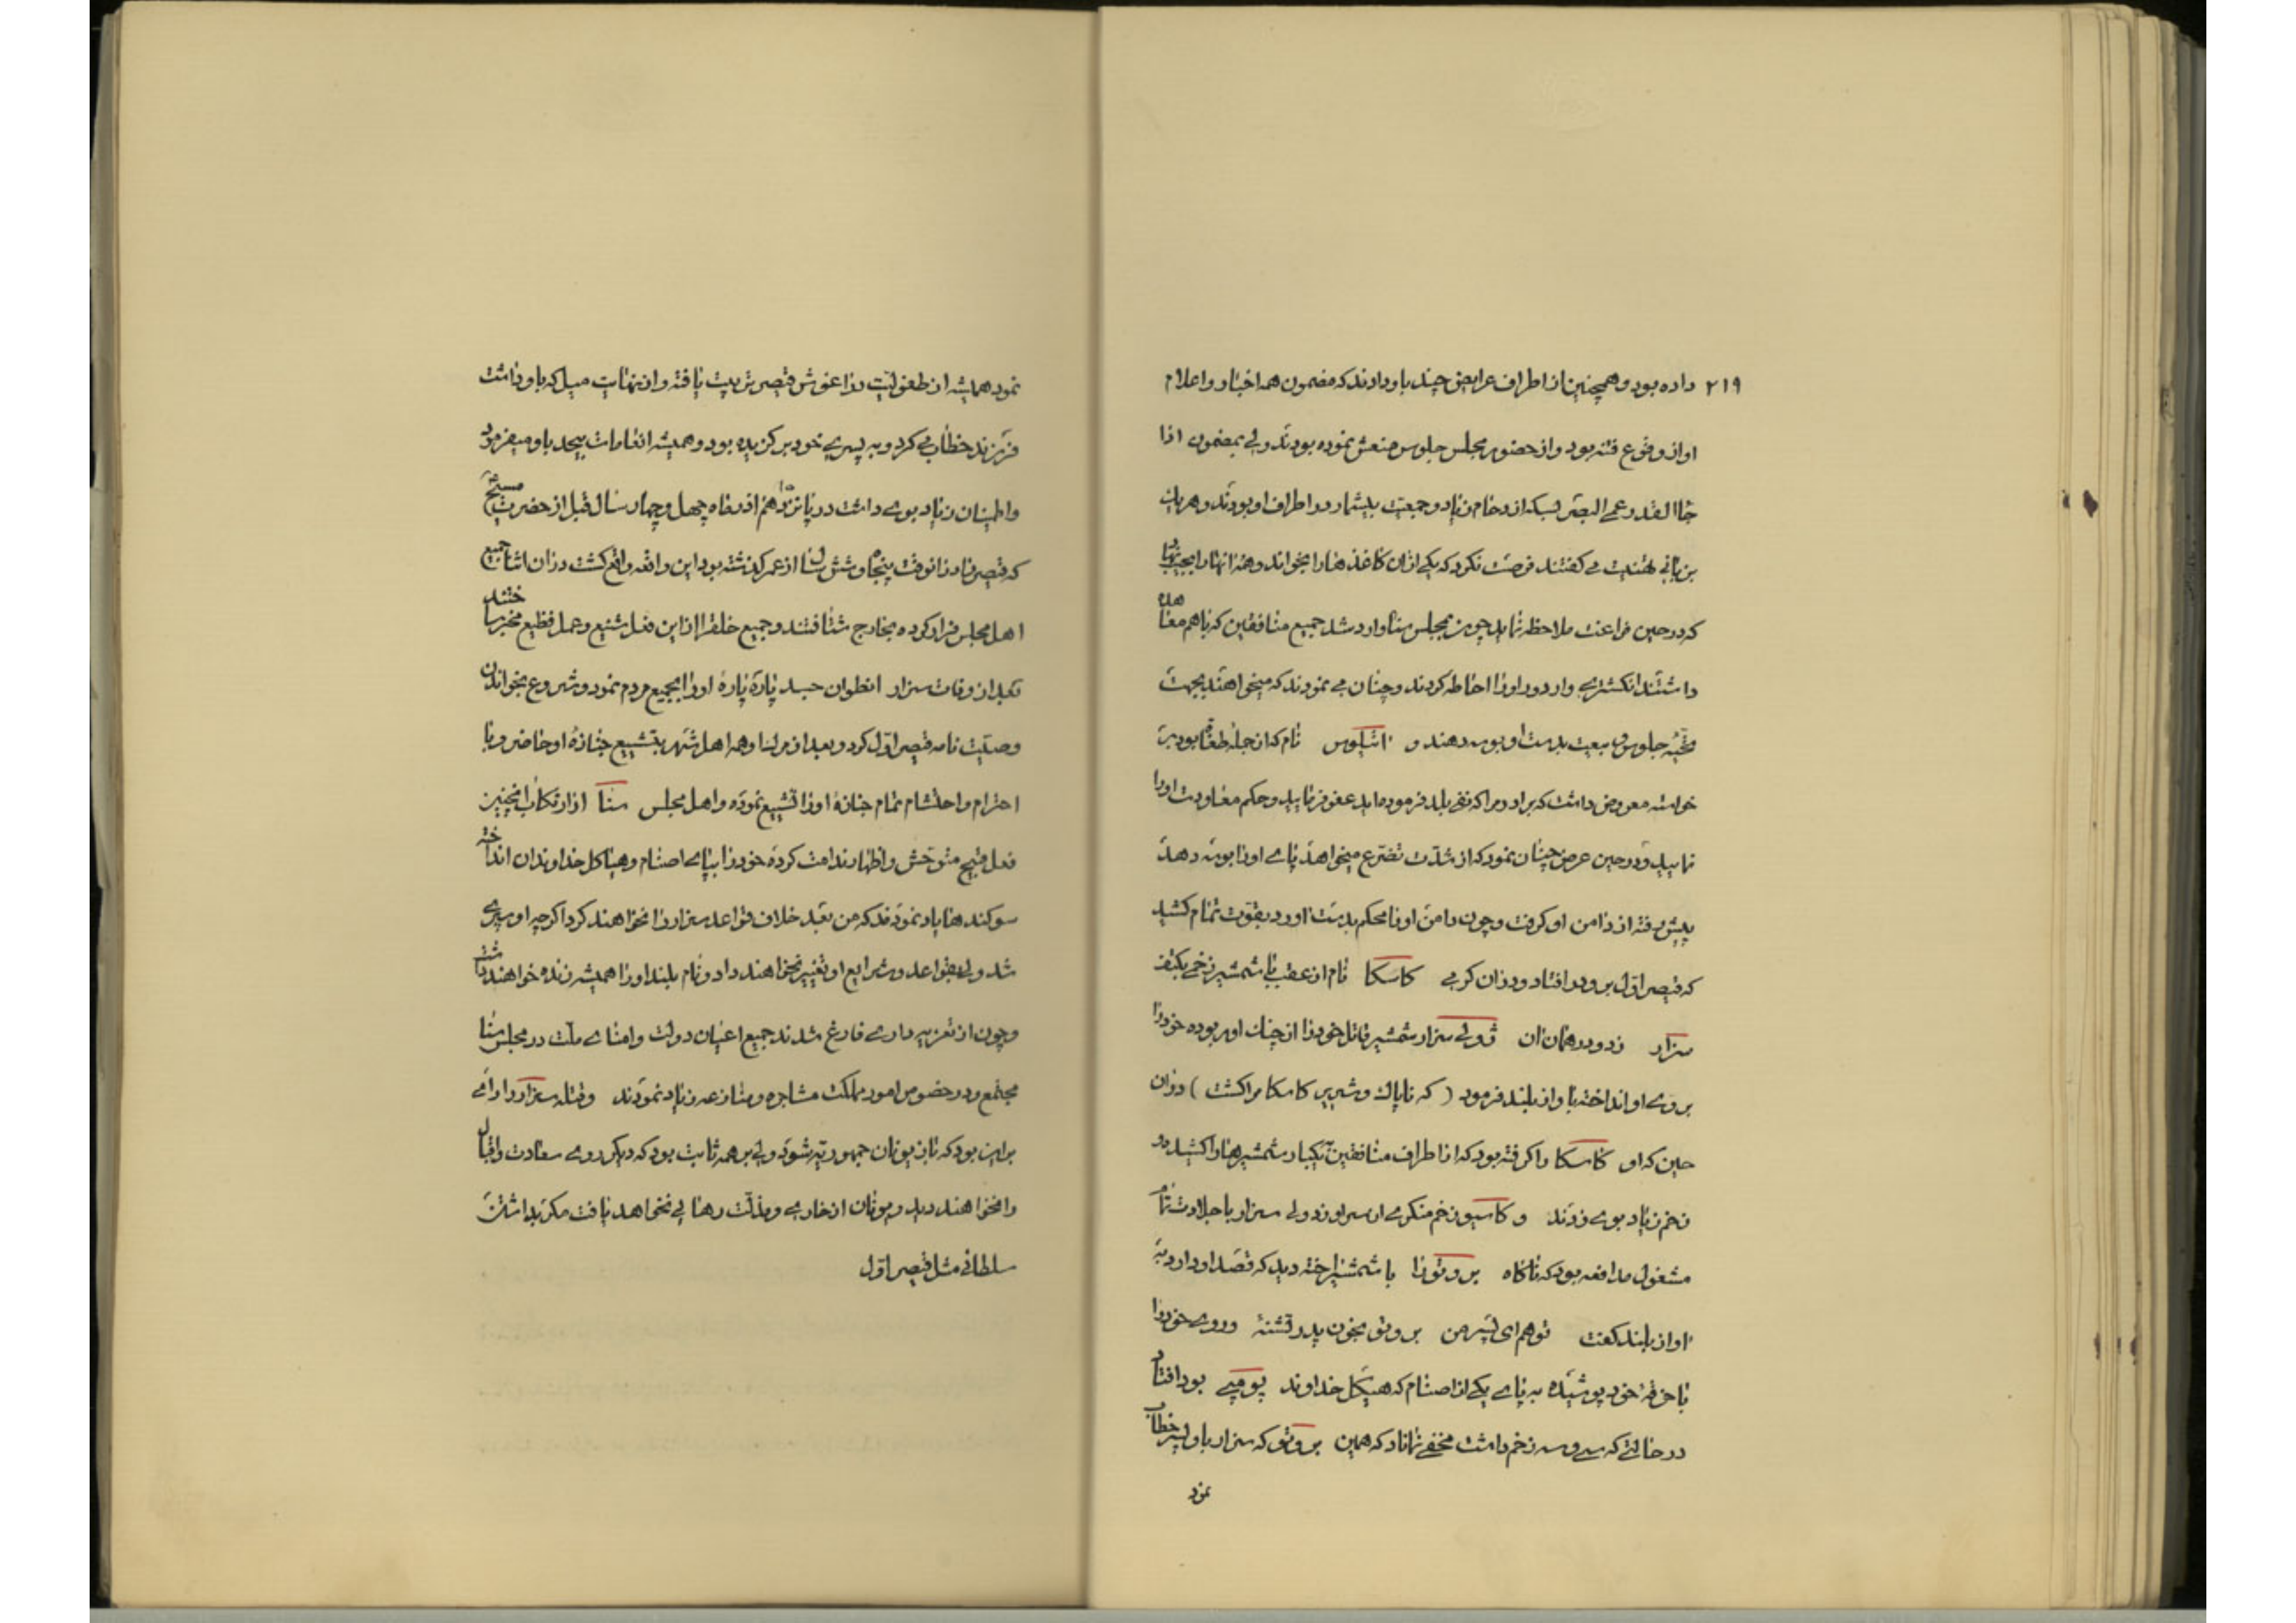 ۲۱۹ داده بود و همچنین از اطراف عرایض چند باو دادند که مضمون همه اخبار و اعلام
او از وقوع فتنه بود و از حضور مجلس جلوس منعش نموده بودند ولی بمضمون اذا
جاا لقدر عمی البصر بسکه ازدحام زیاد و جمعیت بیشمار در اطراف او بودند و هر یك
بزبانی تهنیت می کفتند فرصت نکرد که یکی ازان کاغذ هارا بخواند و همۀ انهارا بجیب نهاد
که در حین فراغت ملاحظه نماید چون بمجلس سنا وارد شد جمیع منافقین که باهم معاهده
داشتند انکشتری وار دور اورا احاطه کردند و چنان می نمودند که میخواهند بجهت
تحیّه جلوس و بیعت بدست او بوسه دهند و نام که از جمله طغاة بود بر
خواسته معروض داشت که برادر مرا که نفی بلد فرموده اید عفو فرمایید و حکم معاودت اورا
نمایید و در حین عرض چنان نمود که از شدّت تضرّع میخواهد پای اورا بوسه دهد
پیش رفته از دامن او کرفت و چون دامن اورا محکم بدست اورد بقوت تمام کشید
که قیصر اوّل برو در افتاد و دران کرمی کاسکا نام از عقب با شمشیر زخمی بکتف
سزار زد و در همان ان ژولی سزار شمشیر قاتل خودرا از چنك او ربوده خودرا
بروی او انداخته باواز بلند فرمود ( که ناپاك و شریر کاسکا مرا کشت ) دران
حین که او کاسکا را کرفته بود که از اطراف منافقین یکبار شمشیرهارا کشیده دو
زخم زیاد بوی زدند و کاسیو زخم منکری از سر او زد ولی سزار با جلادت تمام
مشغول مدافعه بود که ناکاه بروتورا با شمشیر اخته دید که قصد او دارد به
اواز بلند کفت توهم ای پسر من بروتو بخون پدر تشنۀ و روی خودرا
با خرقۀ خود پوشیده به پای یکی از اصنام که هیکل خداوند پومپی بود افتاد
در حالتی که سی و سه زخم داشت مخفی نماناد که همین بروتو که سزار باو پسر خطاب
نمود
نمود همیشه از طفولیت در اغوش قیصر تربیت یافته و از نهایت میل که باو داشت
فرزند خطاب می کرد و به پسری خود بر کزیده بود و همیشه انعامات بیحد باو میفرمود
و اطمینان زیاد بوی داشت در پانزدهم اذر ماه چهل و چهار سال قبل از حضرت مسیح
که قیصر را درانوقت پنجاه و شش سال از عمر کذشته بود این واقعه واقع کشت دران اثنا جمیع
اهل مجلس فرار کرده بخارج شتافتند و جمیع خلق را ازاین فعل شنیع و عمل فظیع مخبر ساختند
بعد از وفات سزار انطوان جسد پارۀ پارۀ اورا بجمیع مردم نمود و شروع بخواندن
وصیّت نامه قیصر اوّل کرد و بعد ازمراسله اهل شهر بتشییع جنازۀ او حاضر و با
احترام و احتشام تمام جنازۀ اورا تشییع نموده و اهل مجلس سنا از ارتکاب انچنین
فعل قبیح متوحّش و اظهار ندامت کرده خودرا بپای اصنام و هیاکل خداوندان انداخته
سوکند ها یاد نمودند که من بعد خلاف قواعد سزار را نخواهند کرد اکرچه او سپری
شد ولی بقواعد و شرایع او تغییر نخواهند داد و نام بلند اورا همیشه زنده خواهند داشت
و چون از تعزیه داری فارغ شدند جمیع اعیان دولت و امنای ملّت در مجلس سنا
مجتمع و در خصوص امور مملکت مشاجره و منازعه زیاد نمودند و قتله سزار را رای
براین بود که باز یونان جمهوریّه شود ولی بر همه ثابت بود که دیکر روی سعادت و اقبال
را نخواهند دید و یونان از خاری و مذلّت رهائی نخواهد یافت مکر بداشتن
سلطانی مثل قیصر اوّل